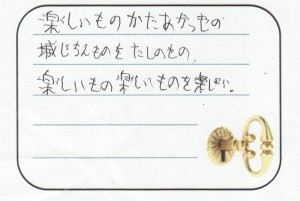 楽しいものかたあかつもの
城じちんものをたしのもの。
楽しいもの楽しいものを楽しい。